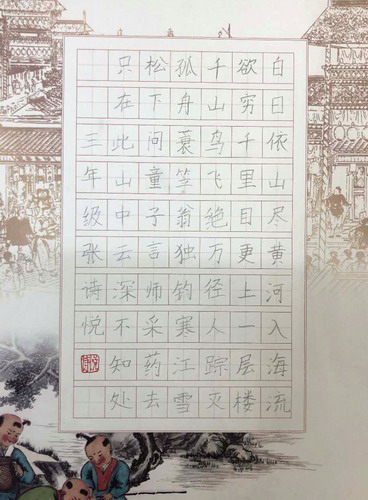 白日依山尽黄河入海流
欲穷千里目更上一层楼
千山鸟飞绝万径人踪灭
孤舟蓑笠翁独钓寒江雪
松下问童子言师采药去
只在此山中云深不知处
三年级张诗悦